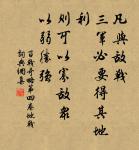 凡與敵戰
三軍必要得其地
利
則可以寡敵眾
以弱勝強
百戰奇略第四卷地戰
詞典網集